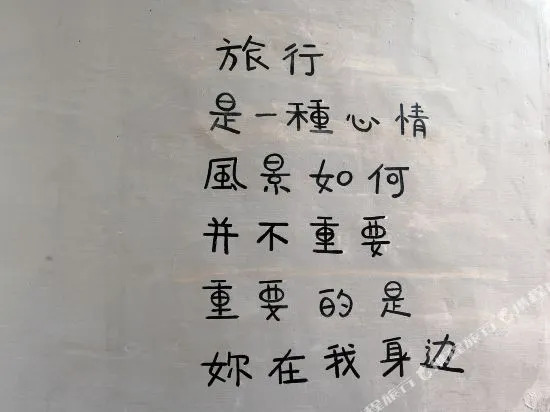 旅行
是一種心情
風景如何
并不重要
重要的是
妳在我身边